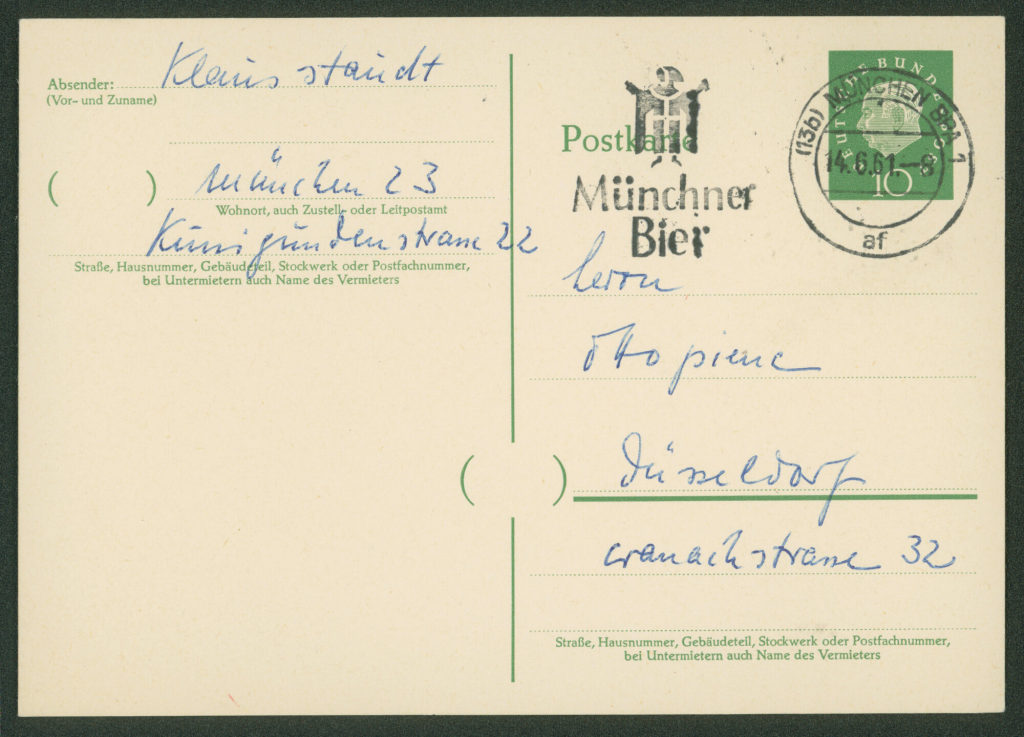 Absender: Klaus staudt
(Vor- und Zuname)
( ) München 23
Wohnort, auch Zustell- oder Leitpostamt
Kunigundenstrasse 22
Straße, Hausnummer, Gebäudeteil, Stockwerk oder Postfachnummer,
bei Untermietern auch Name des Vermieters
Postkarte
Münchner
Bier
(13b) MÜNCHEN BPA 1
14.6.61.-8
af
DEUTSCHE BUNDESPOST
10
herrn
otto piene
( ) düsseldorf
cranachstrasse 32
Straße, Hausnummer, Gebäudeteil, Stockwerk oder Postfachnummer,
bei Untermietern auch Name des Vermieters